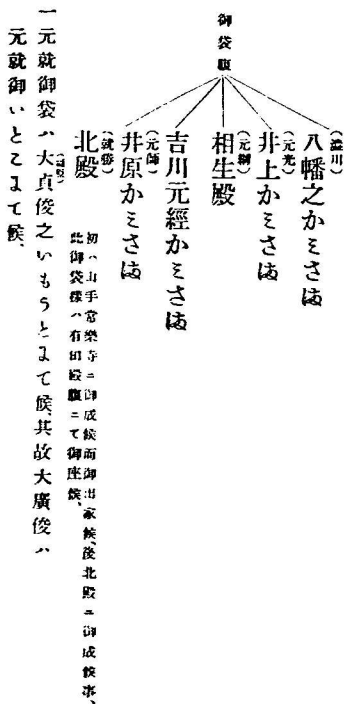 御袋腹
(澁川)
八幡之かミさは
(元光)
井上かミさは
(元綱)
相生殿
吉川元經かミさは
(元師)
井原かミさは
(就勝)
北殿
初ハ山手常樂寺ニ御成候而御出家候、後北殿ニ御成候事、
此御袋樣ハ有田殿腹ニて御座候、
一元就御袋ハ大貞俊之いもうとまて候、其故大廣俊ハ
元就御いとこまて候、